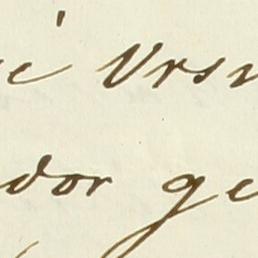 é Vrsn
dor ge